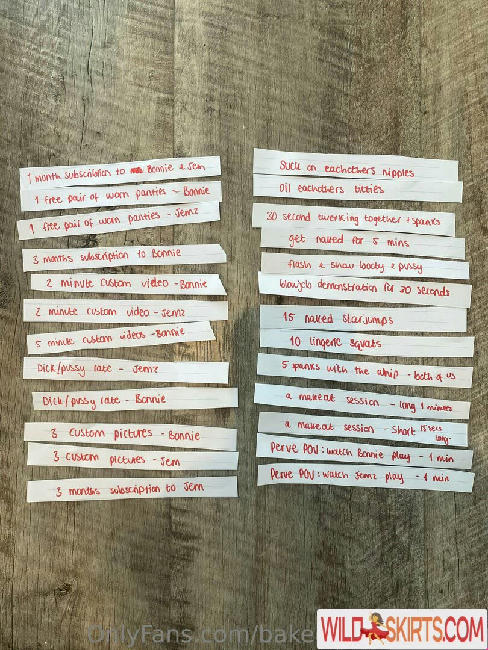 1 month subscription to Bonnie & Jem
1 free pair of worn panties - Bonnie
1 free pair of worn panties - Jemz
3 months subscription to Bonnie
2 minute custom video - Bonnie
2 minute custom video - Jemz
5 minute custom videos - Bonnie
Dick/pussy rate - Jemz
Dick/pussy rate - Bonnie
3 custom pictures - Bonnie
3 custom pictures - Jem
3 months subscription to Jem
Suck on eachothers nipples
Oil eachothers titties
30 second twerking together + spanks
get naked for 5 mins
flash & show booty & pussy
blowjob demonstration for 30 seconds
15 naked starjumps
10 lingerie squats
5 spanks with the whip - both of us
a makeout session - long 1 minutes
a makeout session - short 15 secs
long-
Perve POV: watch Bonnie play - 1 min
Perve POV: watch Jemz play - 1 min
OnlyFans.com/bake
WILDSKIRTS.COM